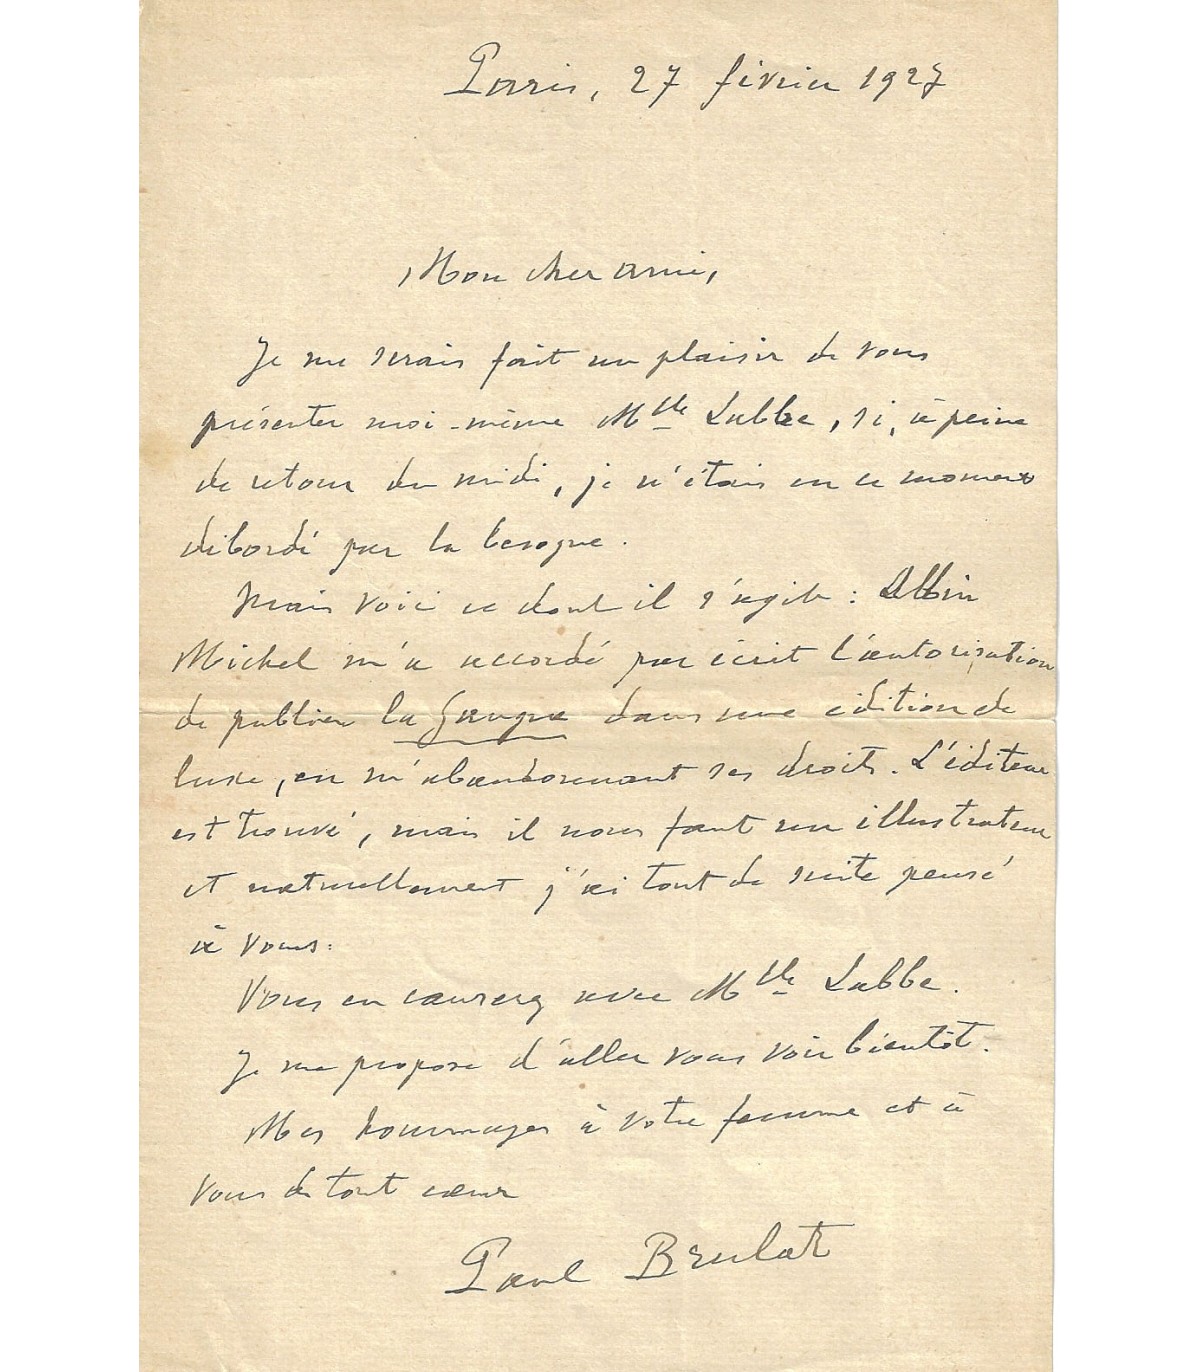 Paris, 27 février 1927
Mon cher ami,
Je me serais fait un plaisir de vous
présenter moi-même Mlle Labbe, si, à peine
de retour du midi, je n'étais en ce moment
débordé par la besogne.
Mais voici ce dont il s'agit : Albin
Michel m'a accordé par écrit l'autorisation
de publier la Gangue dans une édition de
luxe, en m'abandonnant ses droits. L'éditeur
est trouvé, mais il nous faut un illustrateur
et naturellement j'ai tout de suite pensé
à vous.
Vous en causerez avec Mlle Labbe.
Je me propose d'aller vous voir bientôt.
Mes hommages à votre femme et à
vous de tout cœur
Paul Brulat